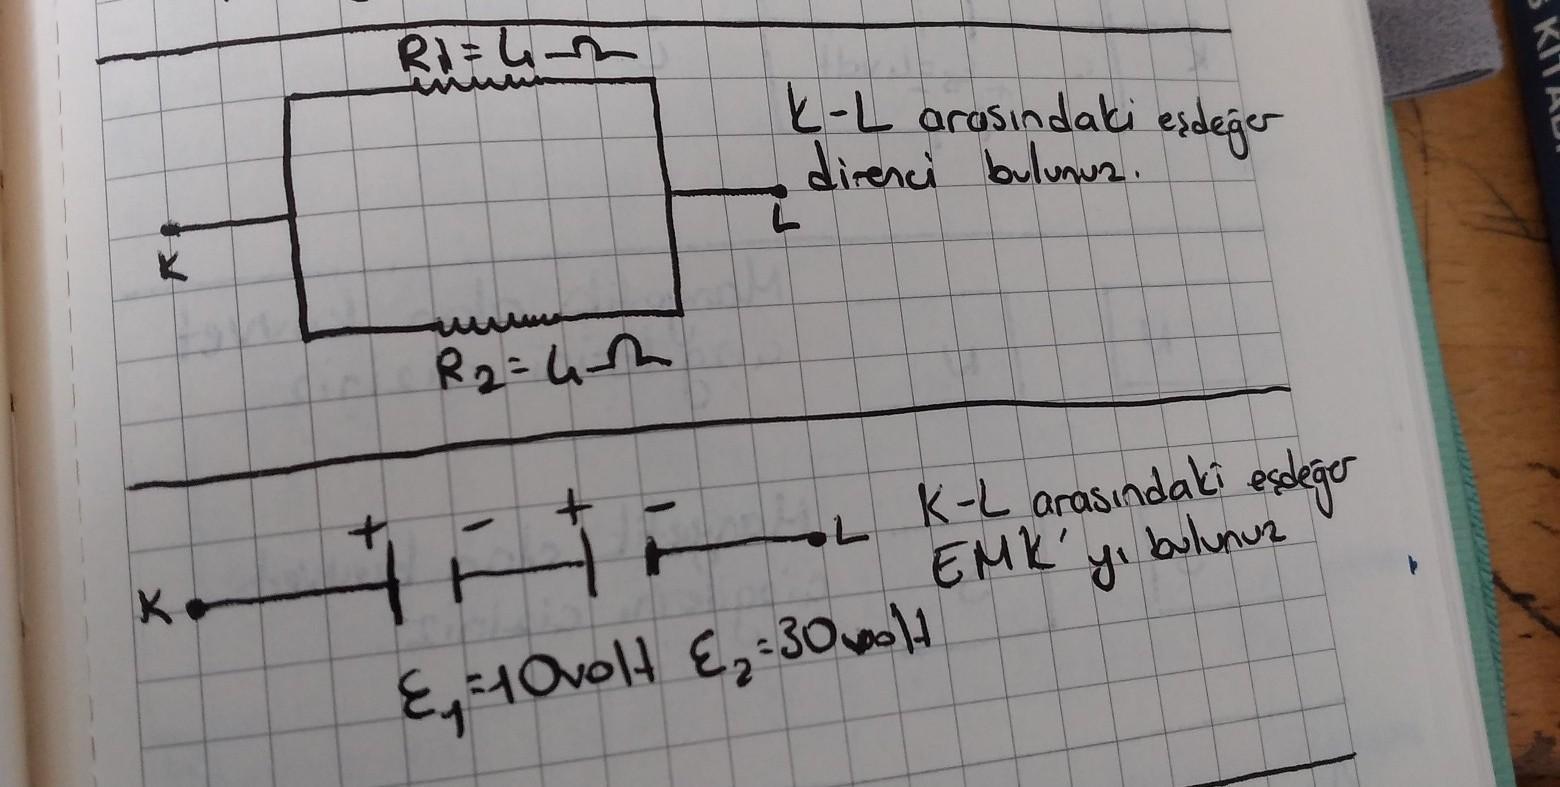 R1=4Ω
K-L arasındaki eşdeğer
direnci bulunuz.
K
L
R2=4Ω
+ - + -
K-L arasındaki eşdeğer
EMK'yı bulunuz
K
L
ε1=10volt ε2=30volt
KİTABI